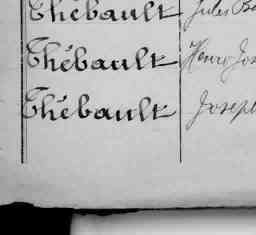 Thébault Jules
Thébault Henri Jos
Thébault Joseph